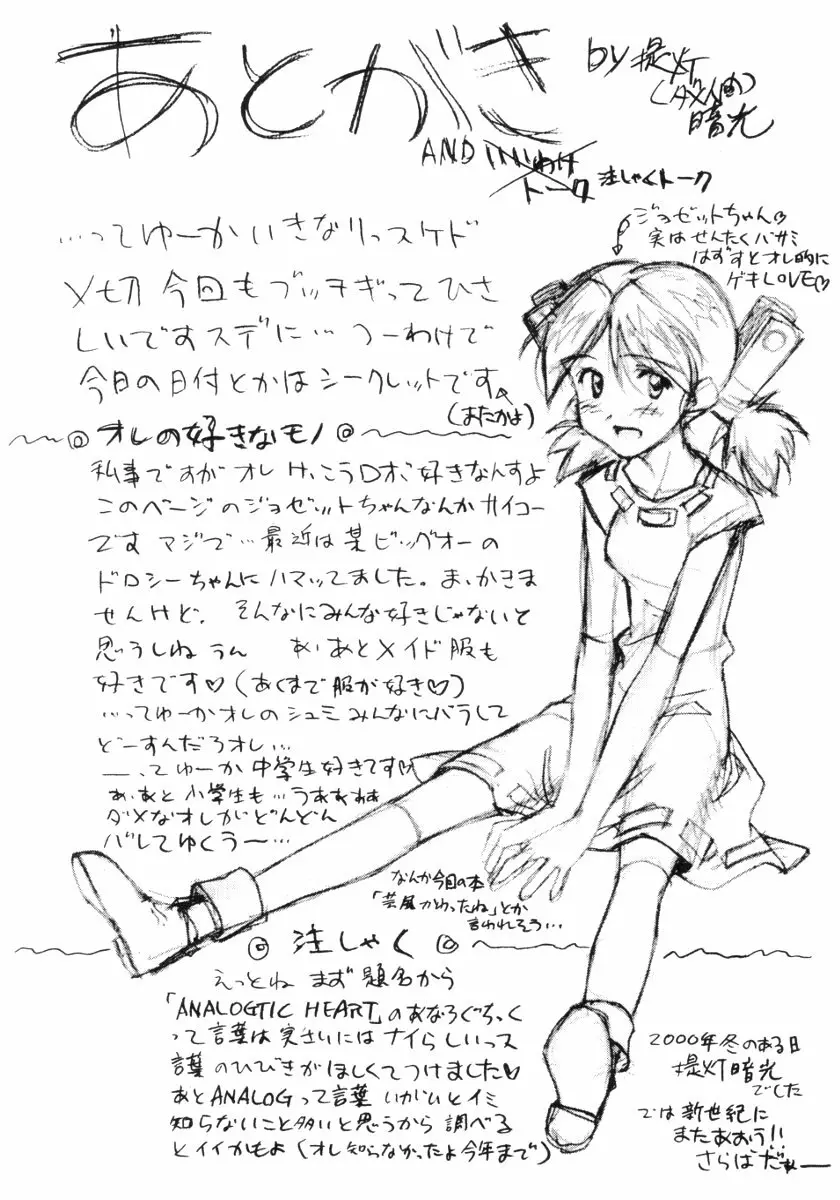 あとがき
by 提灯
暗光
AND いいわけ
トーク 注しゃくトーク
ジョゼットちゃん♡
実はせんたくバサミ
はずすとオレ的に
ゲキLOVE♡
…ってゆーかいきなりっスケド
〆切今回もブッチギってひさ
しいですスデに…つーわけで
今日の日付とかはシークレットです
(おたかよ)
◎オレの好きなモノ◎
私事ですがオレけっこうロボ好きなんすよ
このページのジョゼットちゃんなんかサイコー
ですマジで…最近は某ビッグオーの
ドロシーちゃんにハマッてました。ま、かきま
せんけど。そんなにみんな好きじゃないと
思うしねうん あ、あとメイド服も
好きです♡(あくまで服が好き♡)
…ってゆーかオレのシュミみんなにバラして
どーすんだろオレ…
ー、てゆーか中学生好きです♡
あ、あと小学生も…うああああ
ダメなオレがどんどん
バレてゆくうー…
なんか今回の本
「芸風かわったね」とか
言われそう…
◎注しゃく◎
えっとね まず題名から
「ANALOGTIC HEART」のあなろぐちっく
って言葉は実さいにはナイらしいっス
言葉のひびきがほしくてつけました♡
あとANALOGって言葉いがいとイミ
知らないこと多いと思うから調べる
とイイかもよ(オレ知らなかったよ今年まで)
2000年冬のある日
提灯暗光
でした
では新世紀に
またあおう!!
さらばだぁー